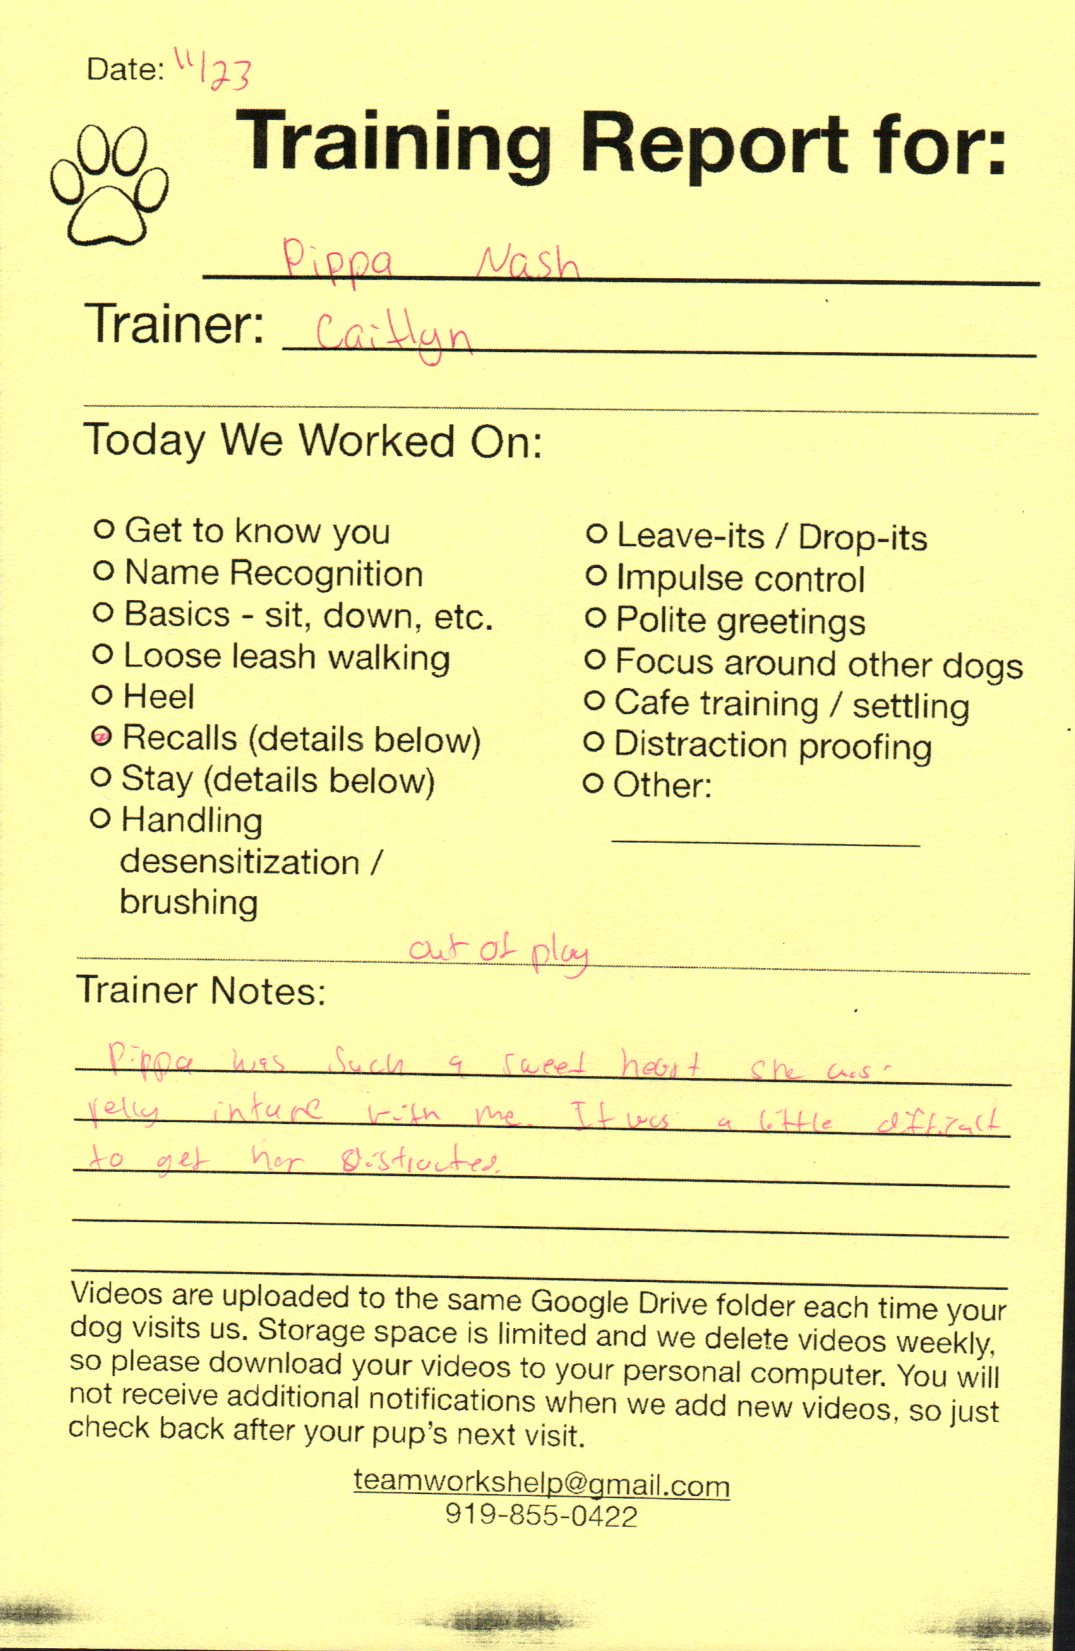 Date: 11/23
Training Report for:
Pippa Nash
Trainer: Caitlyn
Today We Worked On:
Get to know you
Name Recognition
Basics - sit, down, etc.
Loose leash walking
Heel
Recalls (details below)
Stay (details below)
Handling
desensitization /
brushing
Leave-its / Drop-its
Impulse control
Polite greetings
Focus around other dogs
Cafe training / settling
Distraction proofing
Other:
out of play
Trainer Notes:
Pippa was such a sweet heart she was
intune with me. It was a little difficult
to get her distracted.
Videos are uploaded to the same Google Drive folder each time your
dog visits us. Storage space is limited and we delete videos weekly,
so please download your videos to your personal computer. You will
not receive additional notifications when we add new videos, so just
check back after your pup's next visit.
teamworkshelp@gmail.com
919-855-0422